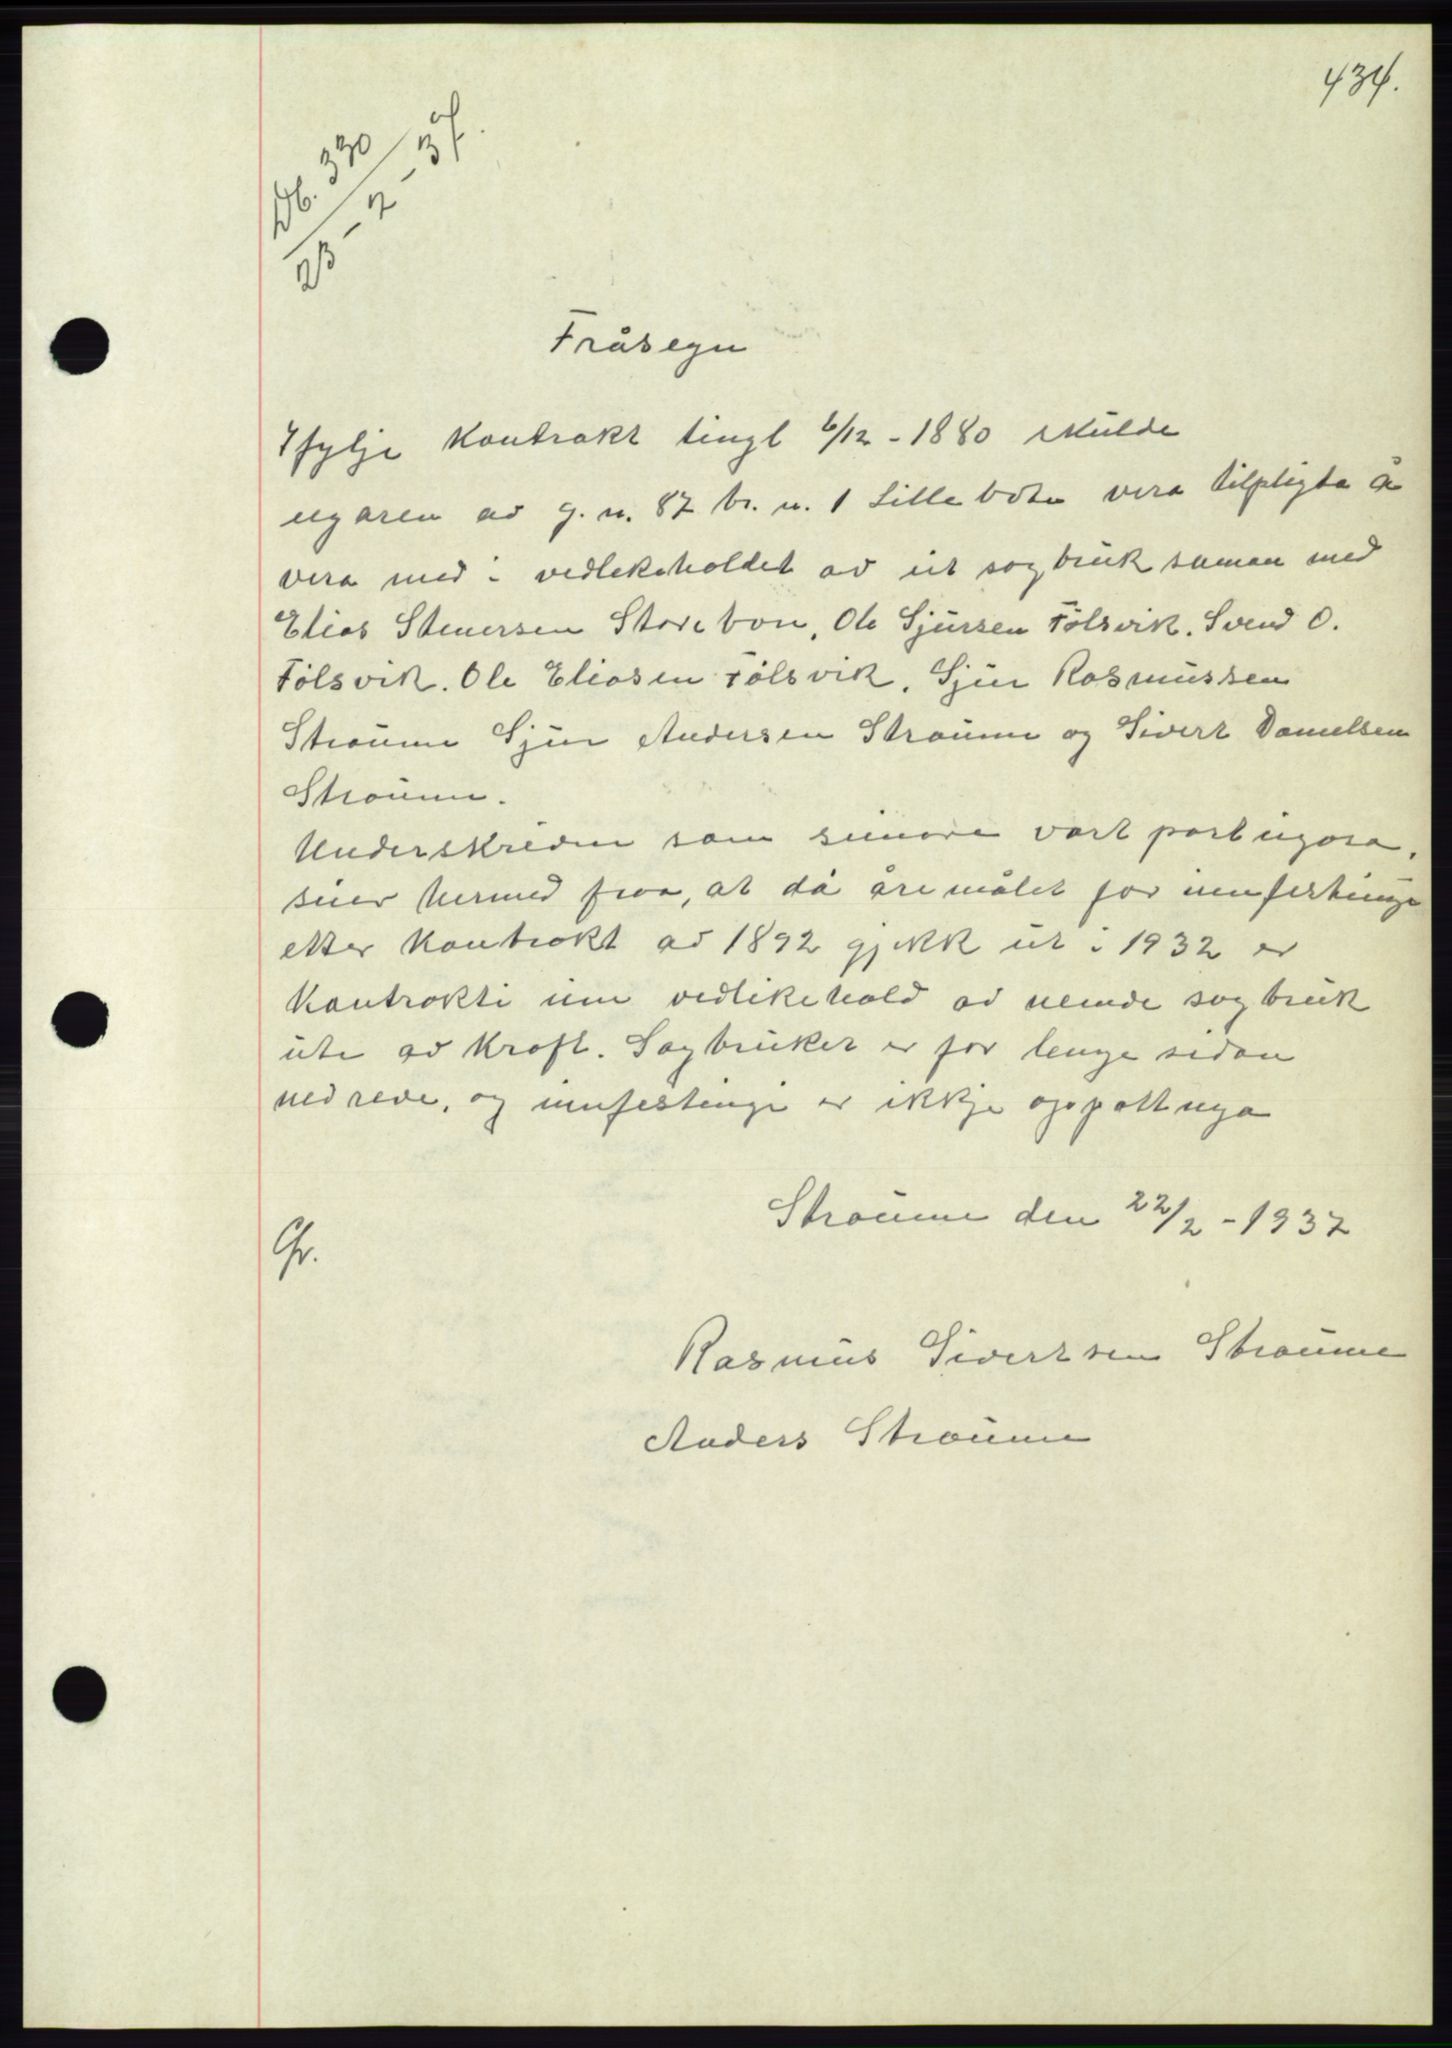 434.
Db. 330
23 - 2 - 37.
Fråsegn
Ifylje Kontrakt tingl 6/12 - 1880 skulde
eigaren av g. n. 87 br. n. 1 Lillebøen vera tilpligta å
vera med i vedlekeholdet av eit sagbruk saman med
Elias Stenersen Storebøn, Ole Sjursen Fölsvik. Svend O.
Fölsvik. Ole Eliasen Fölsvik, Sjur Rasmussen
Straume Sjur Andersen Straume og Sivert Danielsen
Straume.
Underskrevne som seinare vart part eigara,
seier hermed fraa, at då åremålet for innfestinge
etter Kontrakt av 1892 gjekk ut i 1932 er
Kontrakti um vedlikehold av nemde sagbruk
ute av kraft. Sagbruket er for lenge sidan
nedreve, og innfestingi er ikkje oppatt nya
Straume den 22/2 - 1937
Gr.
Rasmus Sivertsen Straume
Anders Straume